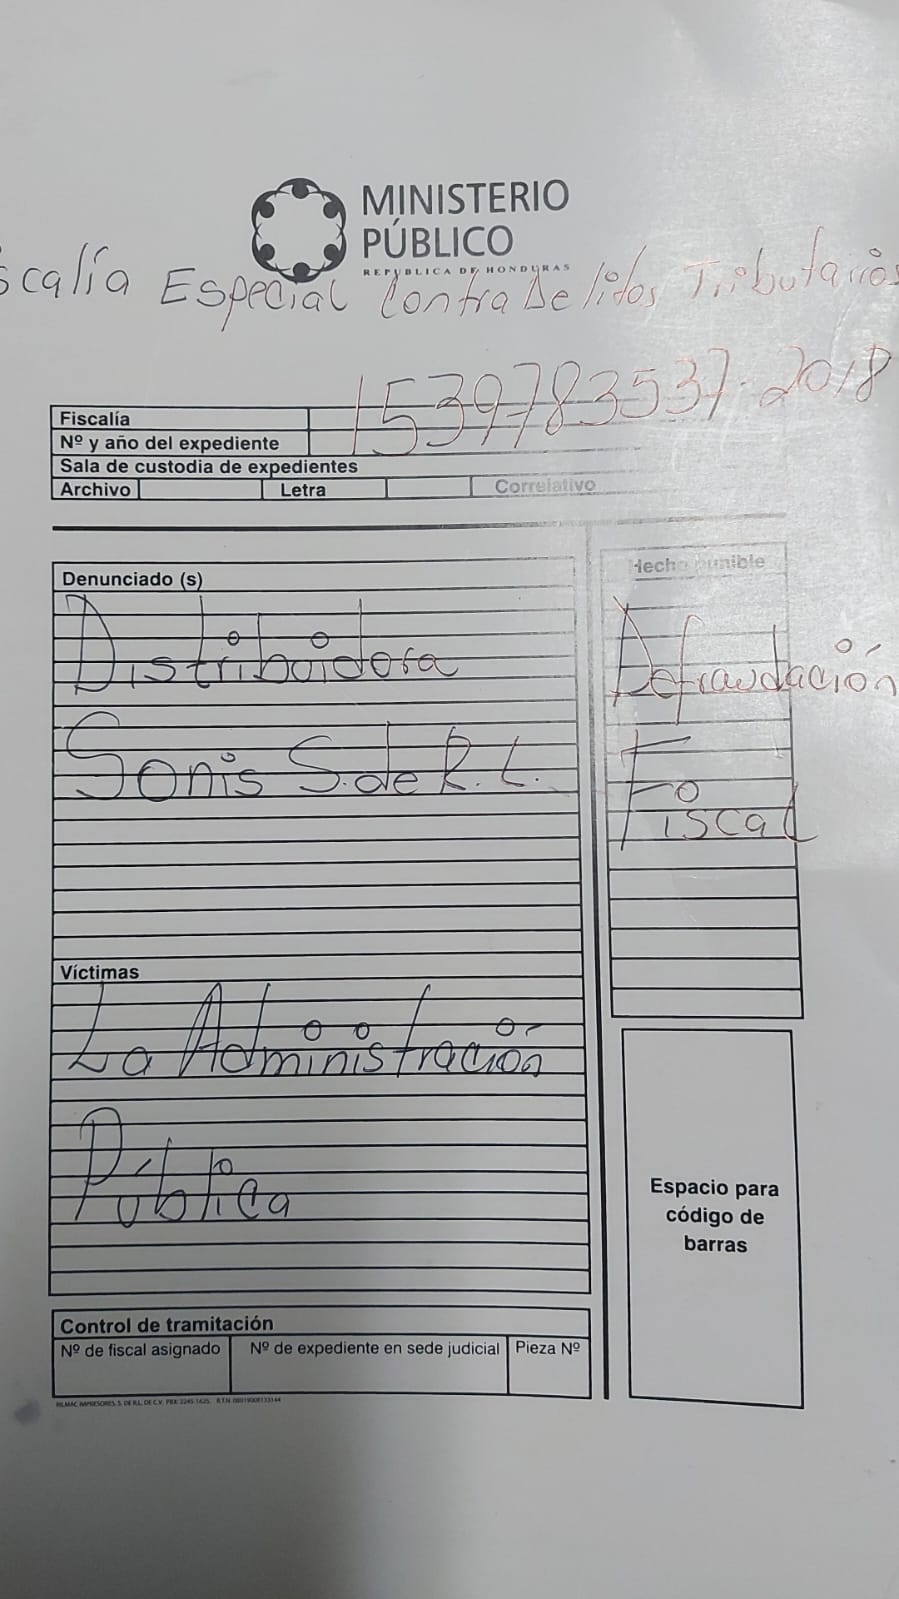 MINISTERIO
PÚBLICO
REPUBLICA DE HONDURAS
scalía Especial Contra Delitos Tributarios
Fiscalía
1539783537-2018
Nº y año del expediente
Sala de custodia de expedientes
Archivo Letra Correlativo
Denunciado (s)
Distribuidora
Sonis S. de R. L.
Hecho punible
Defraudación
Fiscal
Víctimas
La Administración
Pública
Espacio para
código de
barras
Control de tramitación
Nº de fiscal asignado Nº de expediente en sede judicial Pieza Nº
RILMAC IMPRESORES, S. DE R.L. DE C.V. PBX: 2245-1625.